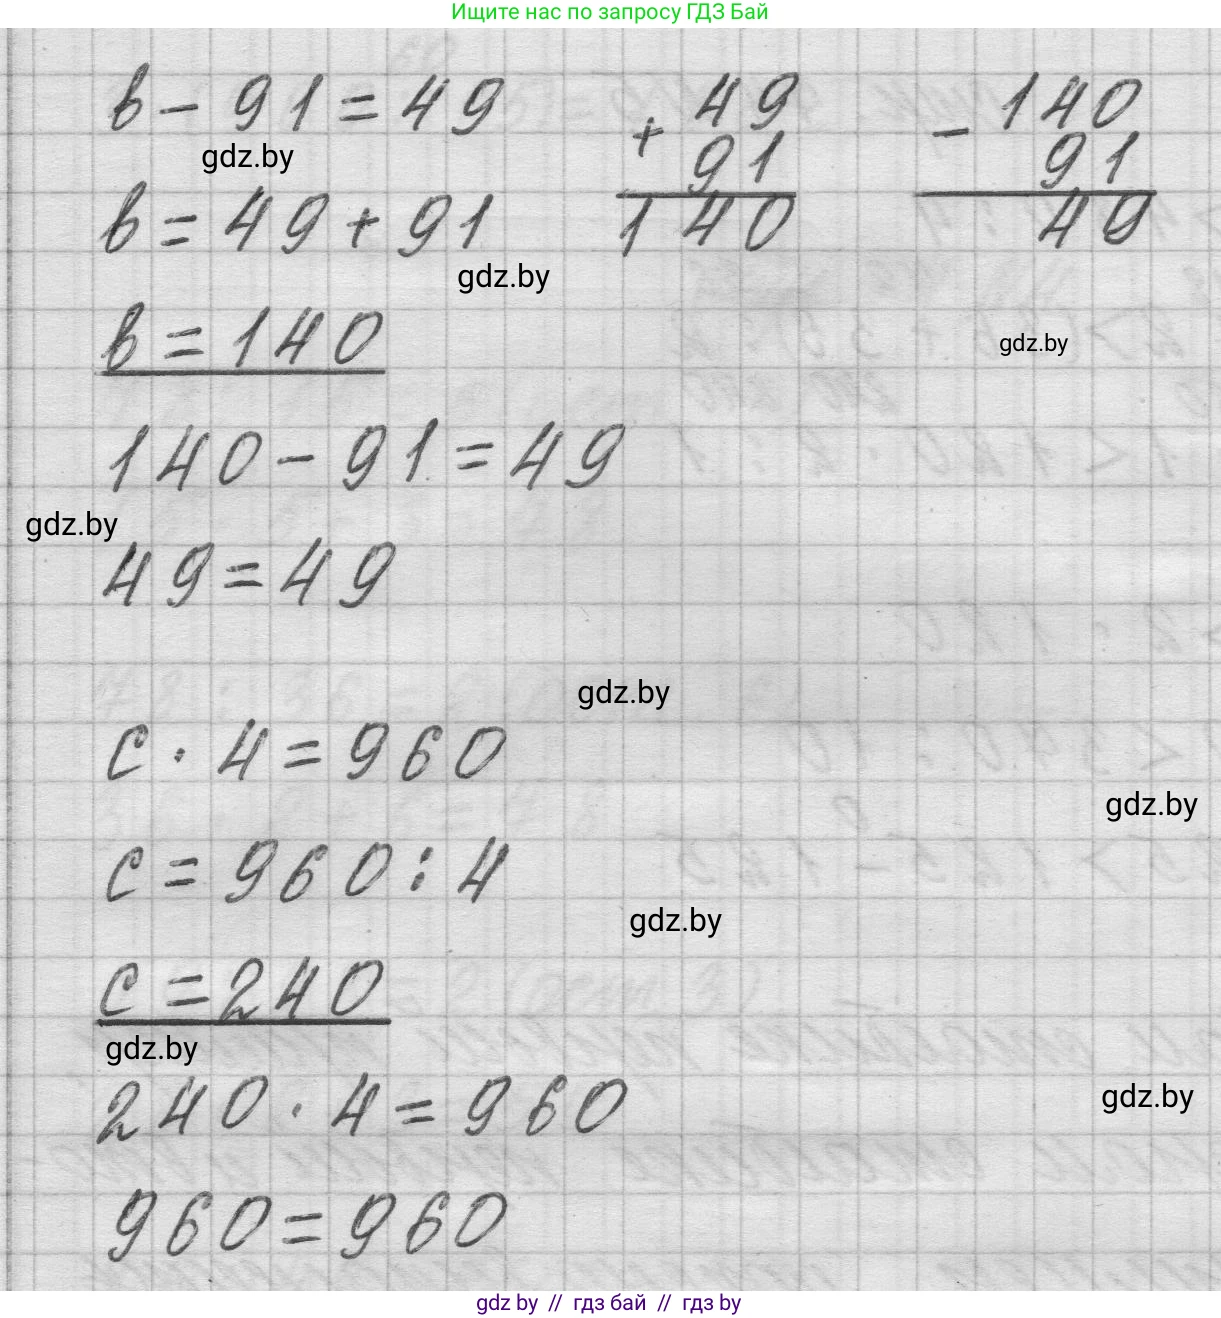 Ищите нас по запросу ГДЗ Бай
в - 91 = 49
gdz.by
в = 49 + 91
gdz.by
в = 140
140 - 91 = 49
gdz.by
49 = 49
+ 49
91
140
- 140
91
49
gdz.by
gdz.by
с · 4 = 960
gdz.by
с = 960 : 4
gdz.by
с = 240
gdz.by
240 · 4 = 960
gdz.by
960 = 960
gdz by // гдз бай // гдз by